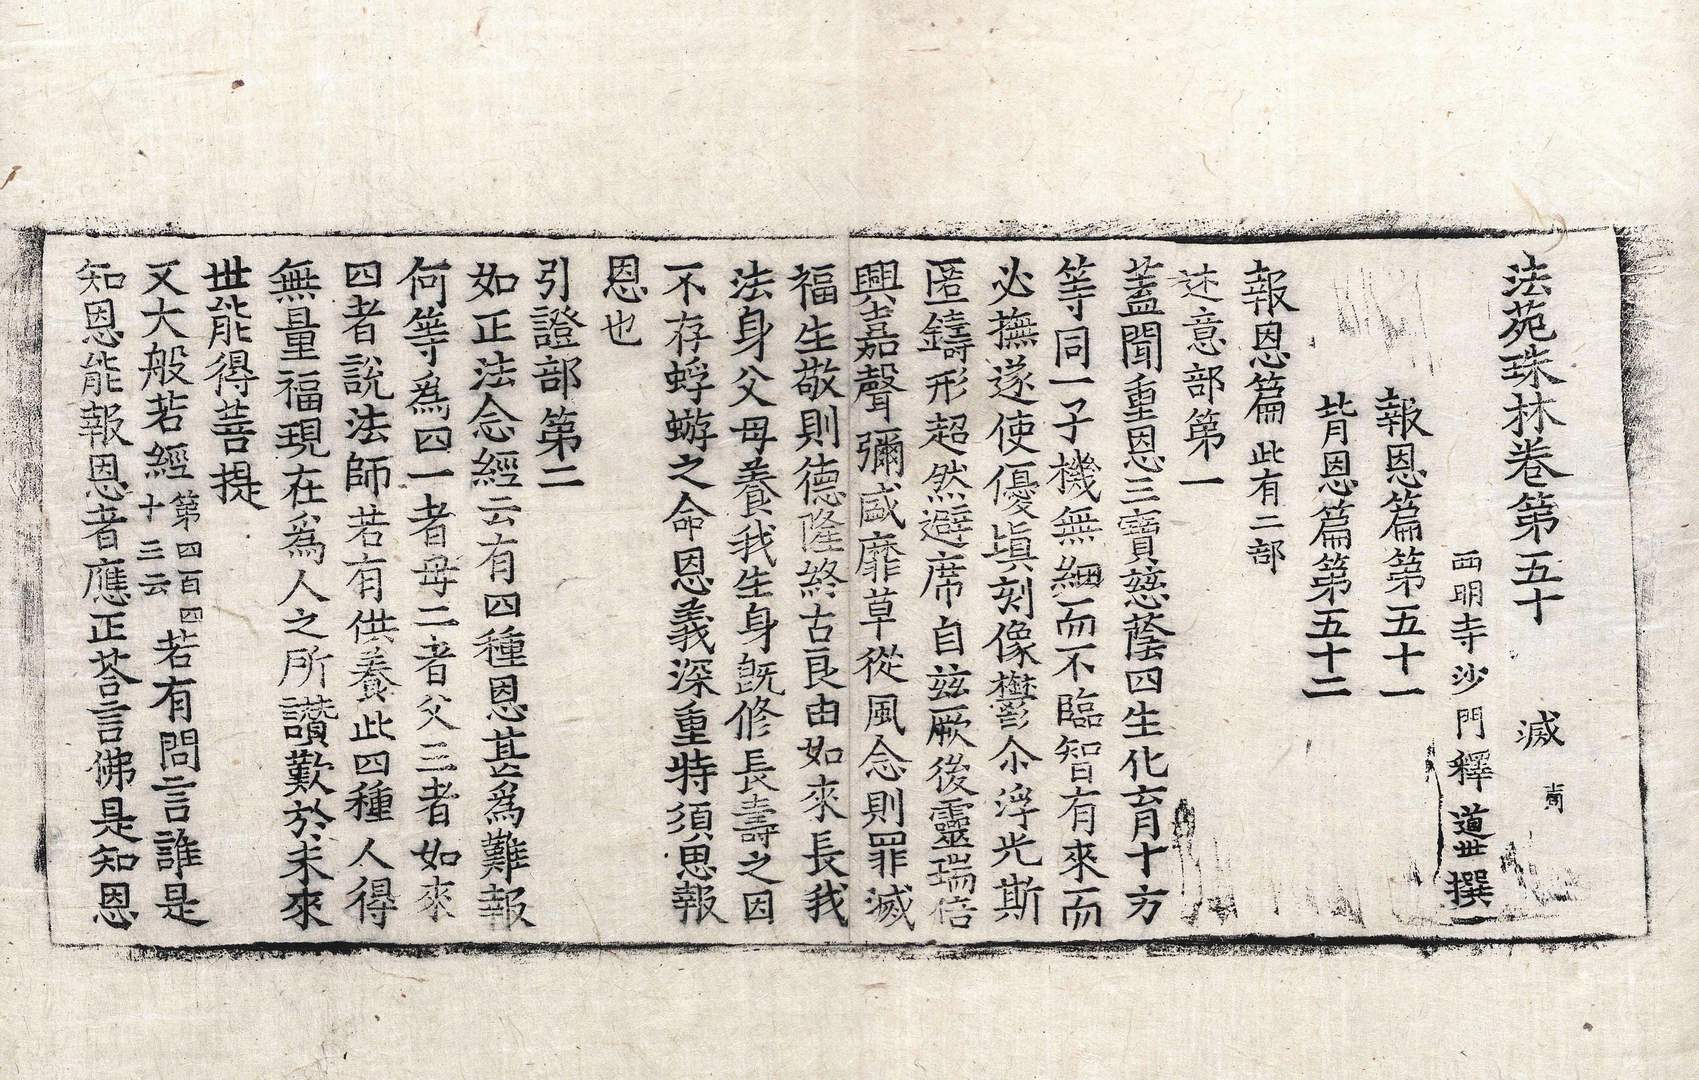 法苑珠林卷第五十 滅
西明寺沙門釋道世撰
報恩篇第五十一
背恩篇第五十二
報恩篇 此有二部
述意部第一
蓋聞重恩三寶慈蔭四生化育十方
等同一子機無細而不臨智有來而
必撫遂使優塡刻像鬱尒浮光斯
匿鑄形超然避席自茲厥後靈瑞倍
興嘉聲彌盛靡草從風念則罪滅
福生敬則德隆終古良由如來長我
法身父母養我生身旣修長壽之因
不存蜉蝣之命恩義深重特須思報
恩也
引證部第二
如正法念經云有四種恩甚爲難報
何等爲四一者母二者父三者如來
四者說法師若有供養此四種人得
無量福現在爲人之所讚歎於未來
世能得菩提
又大般若經第四百四十三云若有問言誰是
知恩能報恩者應正荅言佛是知恩